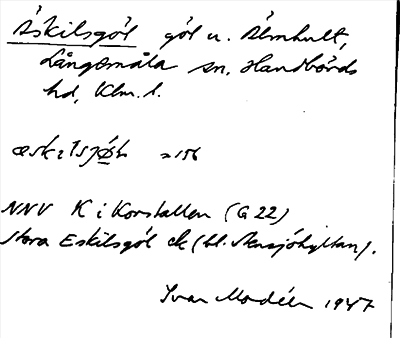 Äskilsgöl göl u. Älmhult,
Långemåla sn, Handbörds
hd, Klm. l.
æskilsjø̄l =156
NNV K i Korshallen (G 22)
Stora Eskilsgöl ek (bl.
Ivar Modéer 1947